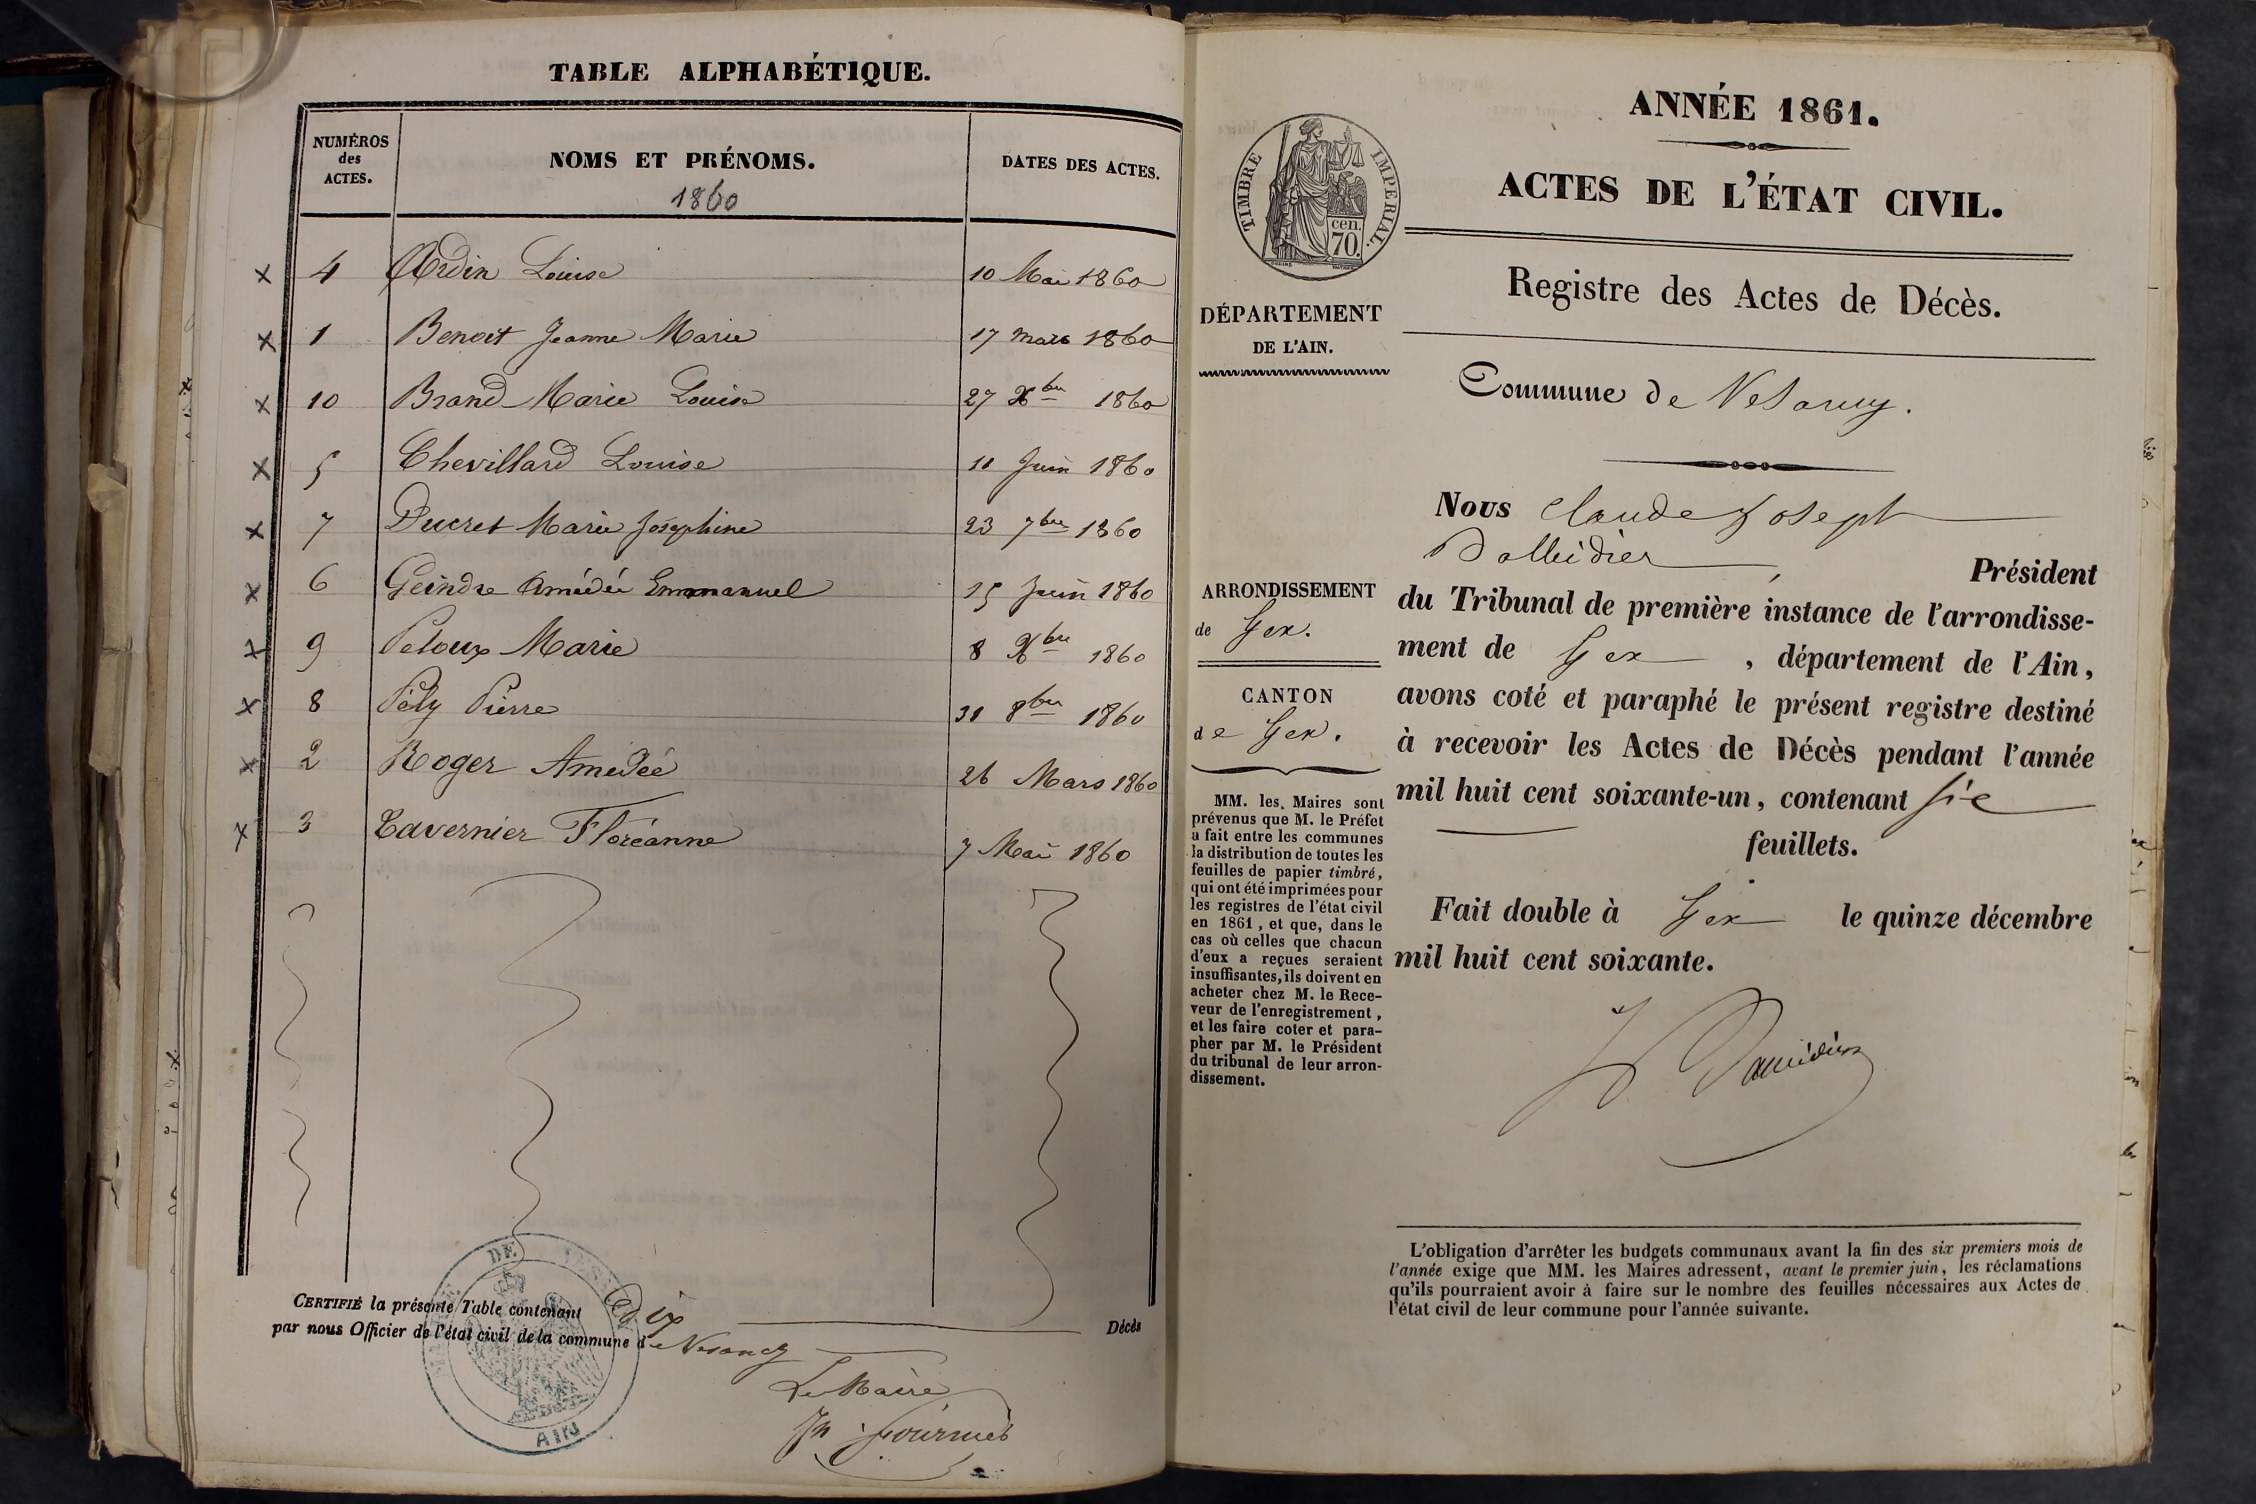 TABLE ALPHABÉTIQUE.
NUMÉROS des ACTES.
NOMS ET PRÉNOMS.
1860
DATES DES ACTES.
4 Ardin Louise 10 Mai 1860
1 Benoit Jeanne Marie 17 mars 1860
10 Brand Marie Louise 27 Xbre 1860
5 Chevillard Louise 11 Juin 1860
7 Ducret Marie Joséphine 23 7bre 1860
6 Geindre Amédée Emmanuel 15 Juin 1860
9 Peloux Marie 8 Xbre 1860
8 Pély Pierre 31 8bre 1860
2 Roger Amédée 26 Mars 1860
3 Tavernier Floréanne 7 Mai 1860
CERTIFIÉ la présente Table contenant dix Décès
par nous Officier de l'état civil de la commune de Vesancy
Le Maire
Fournier
DE VESANCY
AIN
ANNÉE 1861.
ACTES DE L'ÉTAT CIVIL.
TIMBRE IMPERIAL.
cen.
70.
Registre des Actes de Décès.
DÉPARTEMENT
DE L'AIN.
Commune de Vesancy.
ARRONDISSEMENT
de Gex.
CANTON
de Gex.
MM. les Maires sont
prévenus que M. le Préfet
a fait entre les communes
la distribution de toutes les
feuilles de papier timbré,
qui ont été imprimées pour
les registres de l'état civil
en 1861, et que, dans le
cas où celles que chacun
d'eux a reçues seraient
insuffisantes, ils doivent en
acheter chez M. le Rece-
veur de l'enregistrement,
et les faire coter et para-
pher par M. le Président
du tribunal de leur arron-
dissement.
Nous Claude Joseph
Président
du Tribunal de première instance de l'arrondisse-
ment de Gex, département de l'Ain,
avons coté et paraphé le présent registre destiné
à recevoir les Actes de Décès pendant l'année
mil huit cent soixante-un, contenant six
feuillets.
Fait double à Gex le quinze décembre
mil huit cent soixante.
L'obligation d'arrêter les budgets communaux avant la fin des six premiers mois de
l'année exige que MM. les Maires adressent, avant le premier juin, les réclamations
qu'ils pourraient avoir à faire sur le nombre des feuilles nécessaires aux Actes de
l'état civil de leur commune pour l'année suivante.